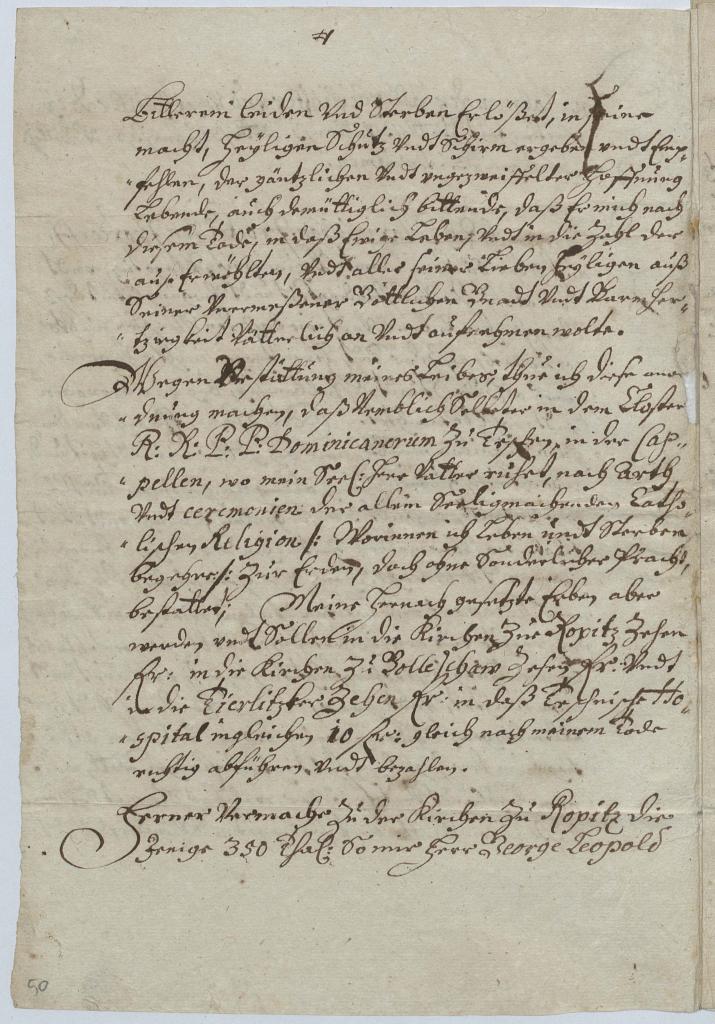 4
bitterem leiden Vnd Sterben Erlößet, in seine
macht, Heyligen Schutz Vndt Schirm ergeben vndt Emp-
-fehlen, der gäntzlichen Vndt ungezweiffelter Hoffnung
Lebende, auch demüttiglich bittende, daß Er mich nach
diesem Tode, in daß Ewige Leben, Vndt in die Zahl der
auß Erwöhlten, Vndt aller seiner Lieben Heyligen auß
Seiner Vnermeßener Göttlichen Gnadt Vndt Barmher-
-tzigkeit Vätterlich an Vndt aufnehmen wolte.
Wegen Bestättung meines Leibes, thue ich diese ano
-dnung machen, daß Nemblich Selbter in dem Closter
R: R: P: P: Dominicanorum zu Teschen, in der Cap-
-pellen, wo mein Seel: Herr Vatter ruhet, nach Arth
Vndt ceremonien der allein Seeligmachenden Catho-
-lischen Religion /: Worinnen ich Leben undt Sterben
begehre :/ zur Erden, doch ohne Sonderlicher Pracht,
bestattet; Meine hernach gesetzte Erben aber
werden vnd Sollen in die Kirchen Zue Ropitz Zehen
Fr: in die Kirchen Zu Bolleschaw Zehen Fr: Vndt
in die Tierlitzker Zehen Fr: in daß Teschnische Ho-
-spital ingleichen 10 Fr: gleich nach meinem Tode
richtig abführen Vndt bezahlen.
Ferner Vermache Zu der Kirchen Zu Ropitz die
Jenige 350 Thal: So mir Herr George Leopold
50